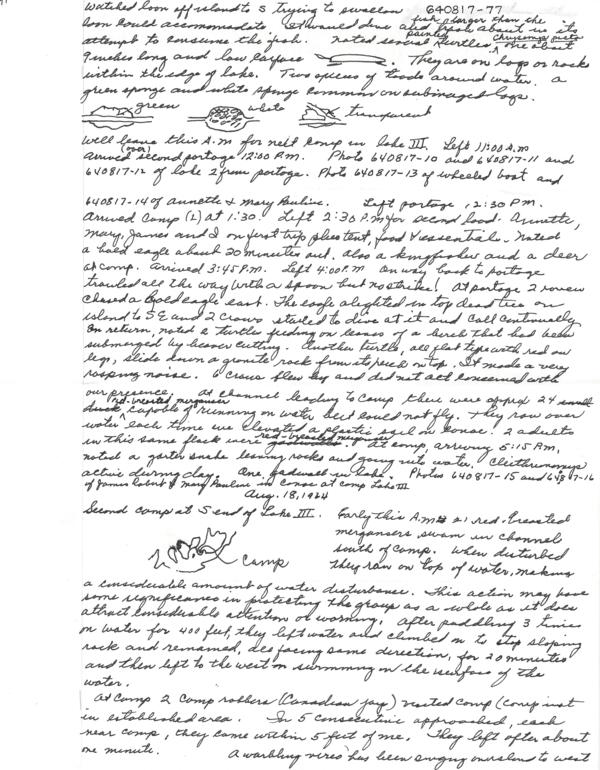 Watched loon off island to S trying to swallow 640817-77
fish larger than the
loon could accommodate. It would dive and splash about in its
attempt to consume the fish. Noted several painted turtles, Chrysemys picta one about
9 inches long and low carapace. They are on logs or rocks
within the edge of lake. Two species of toads around water. a
green sponge and white sponge common on submerged logs.
green white transparent
Will leave this A.M for next camp in lake III. Left 11:00 A.M
(over)
Arrived second portage 12:00 P.M. Photo 640817-10 and 640817-11 and
640817-12 of lake 2 from portage. Photo 640817-13 of wheeled boat and
640817-14 of Annette & Mary Pauline. Left portage, 12:30 PM.
Arrived Camp (2) at 1:30. Left 2:30 P.M for second load. Annette,
Mary, James and I on first trip plus tent, food & essentials. Noted
a bald eagle about 20 minutes out, also a kingfisher and a deer
at camp. Arrived 3:45 P.M. Left 4:00 P.M On way back to portage
trolled all the way (with a spoon but no strike! At portage 2 ravens
chased a bald eagle east. The eagle alighted in top dead tree on
island to S E and 2 crows started to dive at it and call continually
On return, noted a turtle feeding on leaves of a herb that had been
submerged by beaver cutting. Another turtle, all flat type with red on
legs, slide down a granite rock from its perch on top. It made a very
rasping noise. a crow flew by and did not act concerned with
our presence. At channel leading to camp there were approx 24 small
red-breasted merganser
duck capable of running on water but could not fly. They ran over
water each time we elevated a plastic sail on canoe. 2 adults
in this same flock were red-breasted merganser. At camp, arriving 5:15 AM,
noted a garter snake leaving rocks and going into water. Clethrionomys
active during day. One gadwall in lake. Photos 640817-15 and 640817-16
of James Robert & Mary Pauline in canoe at camp Lake III
Aug. 18, 1964
Second camp at S end of Lake III. Early this A.M 21 red-breasted
mergansers swam in channel
south of camp. When disturbed
camp they ran on top of water, making
a considerable amount of water disturbance. This action may have
some significance in protecting the group as a whole as it does
attract considerable attention or warning. After paddling 3 times
on water for 400 feet, they left water and climbed on to step sloping
rock and remained, all facing same direction, for 20 minutes
and then left to the west swimming on the surface of the
water.
At Camp 2 Camp robbers (Canadian jay) visited camp (camp not
in established area. In 5 consecutive approached, each
near camp, they came within 5 feet of me. They left after about
one minute. A warbling vireo has been singing on island to west